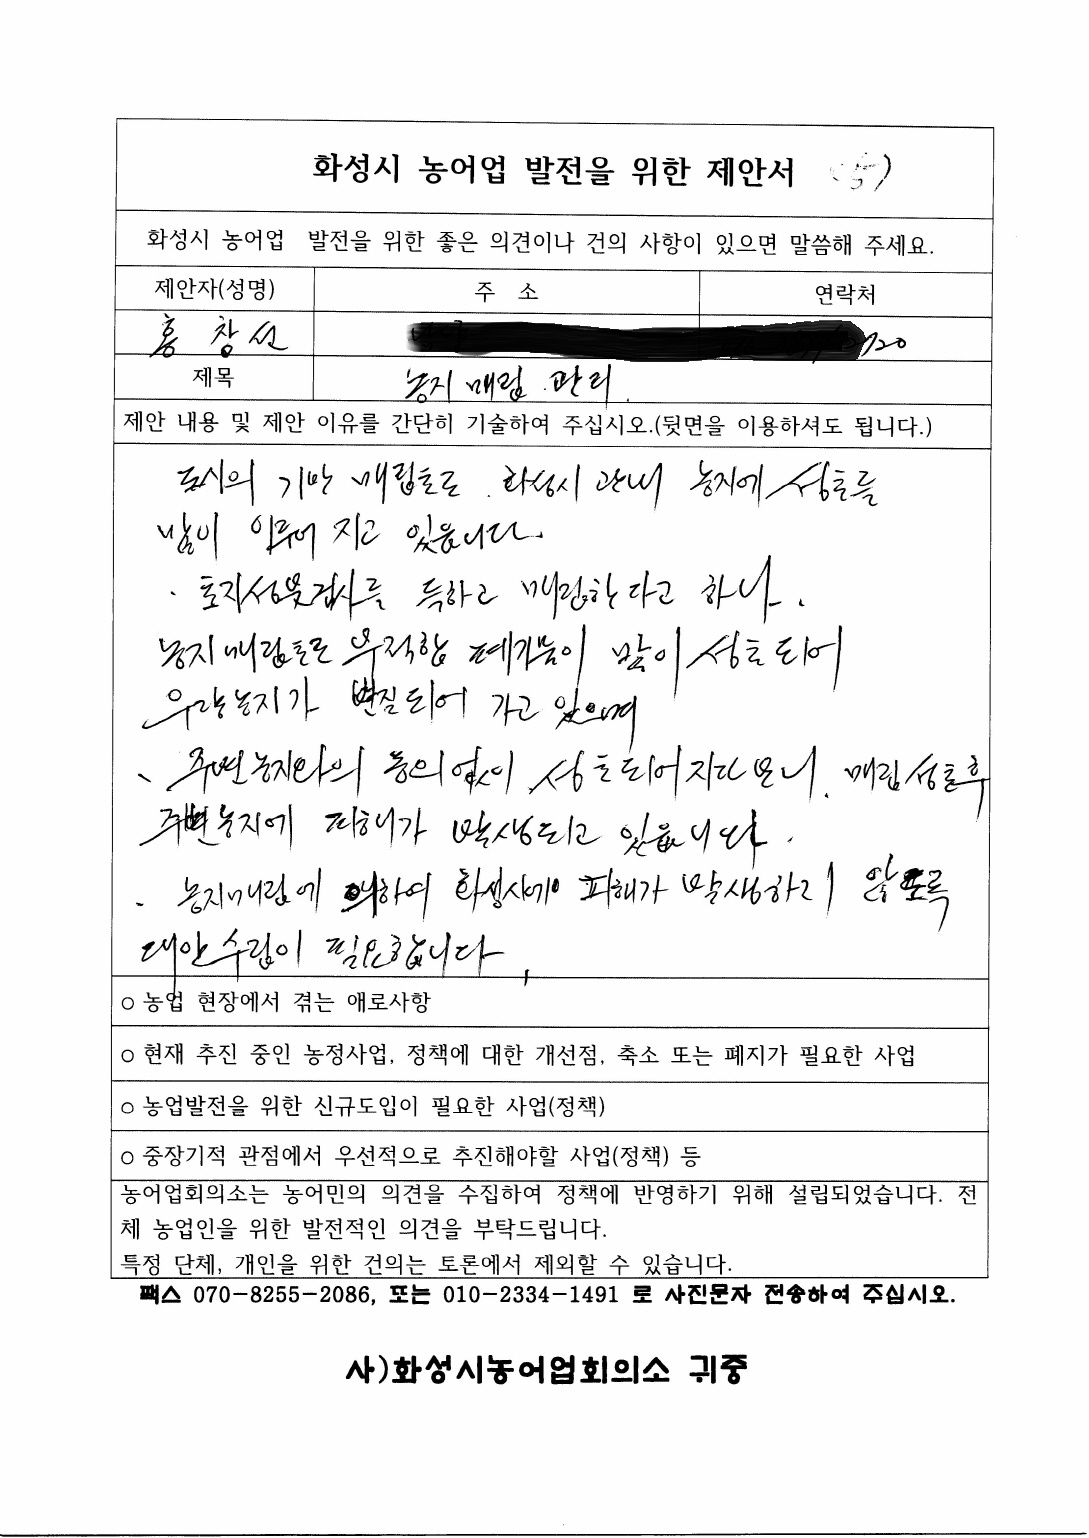 화성시 농어업 발전을 위한 제안서
화성시 농어업 발전을 위한 좋은 의견이나 건의 사항이 있으면 말씀해 주세요.
제안자(성명) 주 소 연락처
홍창선 20
제목 농지 매립 관리.
제안 내용 및 제안 이유를 간단히 기술하여 주십시오.(뒷면을 이용하셔도 됩니다.)
도시의 기반 매립토로 화성시 관내 농지에 성토를
많이 이루어 지고 있읍니다.
· 토지성분검사를 득하고 매립한다고 하나.
농지매립토로 부적합 폐기물이 많이 성토되어
우량농지가 변질되어 가고 있으며
、주변농지와의 동의없이 성토되어지다보니. 매립성토후
주변농지에 피해가 발생되고 있읍니다.
- 농지매립에 의하여 화성시에 피해가 발생하지 않도록
대안수립이 필요합니다.
○ 농업 현장에서 겪는 애로사항
○ 현재 추진 중인 농정사업, 정책에 대한 개선점, 축소 또는 폐지가 필요한 사업
○ 농업발전을 위한 신규도입이 필요한 사업(정책)
○ 중장기적 관점에서 우선적으로 추진해야할 사업(정책) 등
농어업회의소는 농어민의 의견을 수집하여 정책에 반영하기 위해 설립되었습니다. 전
체 농업인을 위한 발전적인 의견을 부탁드립니다.
특정 단체, 개인을 위한 건의는 토론에서 제외할 수 있습니다.
팩스 070-8255-2086, 또는 010-2334-1491 로 사진문자 전송하여 주십시오.
사)화성시농어업회의소 귀중